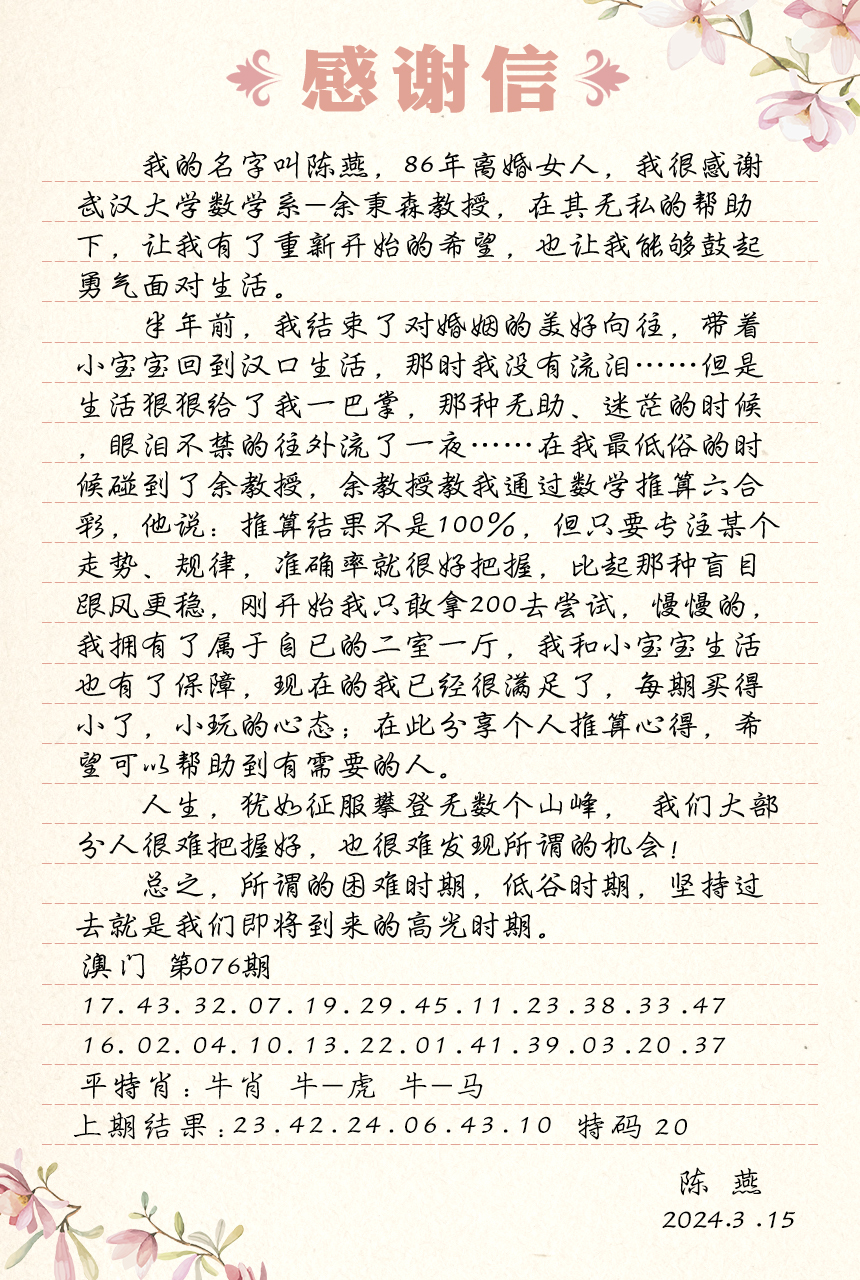 感谢信
我的名字叫陈燕，86年离婚女人，我很感谢
武汉大学数学系—余秉森教授，在其无私的帮助
下，让我有了重新开始的希望，也让我能够鼓起
勇气面对生活。
半年前，我结束了对婚姻的美好向往，带着
小宝宝回到汉口生活，那时我没有流泪……但是
生活狠狠给了我一巴掌，那种无助、迷茫的时候
，眼泪不禁的往外流了一夜……在我最低俗的时
候碰到了余教授，余教授教我通过数学推算六合
彩，他说：推算结果不是100%，但只要专注某个
走势、规律，准确率就很好把握，比起那种盲目
跟风更稳，刚开始我只敢拿200去尝试，慢慢的，
我拥有了属于自已的二室一厅，我和小宝宝生活
也有了保障，现在的我已经很满足了，每期买得
小了，小玩的心态；在此分享个人推算心得，希
望可以帮助到有需要的人。
人生，犹如征服攀登无数个山峰， 我们大部
分人很难把握好，也很难发现所谓的机会！
总之，所谓的困难时期，低谷时期，坚持过
去就是我们即将到来的高光时期。
澳门 第076期
17.43.32.07.19.29.45.11.23.38.33.47
16.02.04.10.13.22.01.41.39.03.20.37
平特肖：牛肖 牛—虎 牛—马
上期结果：23.42.24.06.43.10 特码 20
陈 燕
2024.3.15